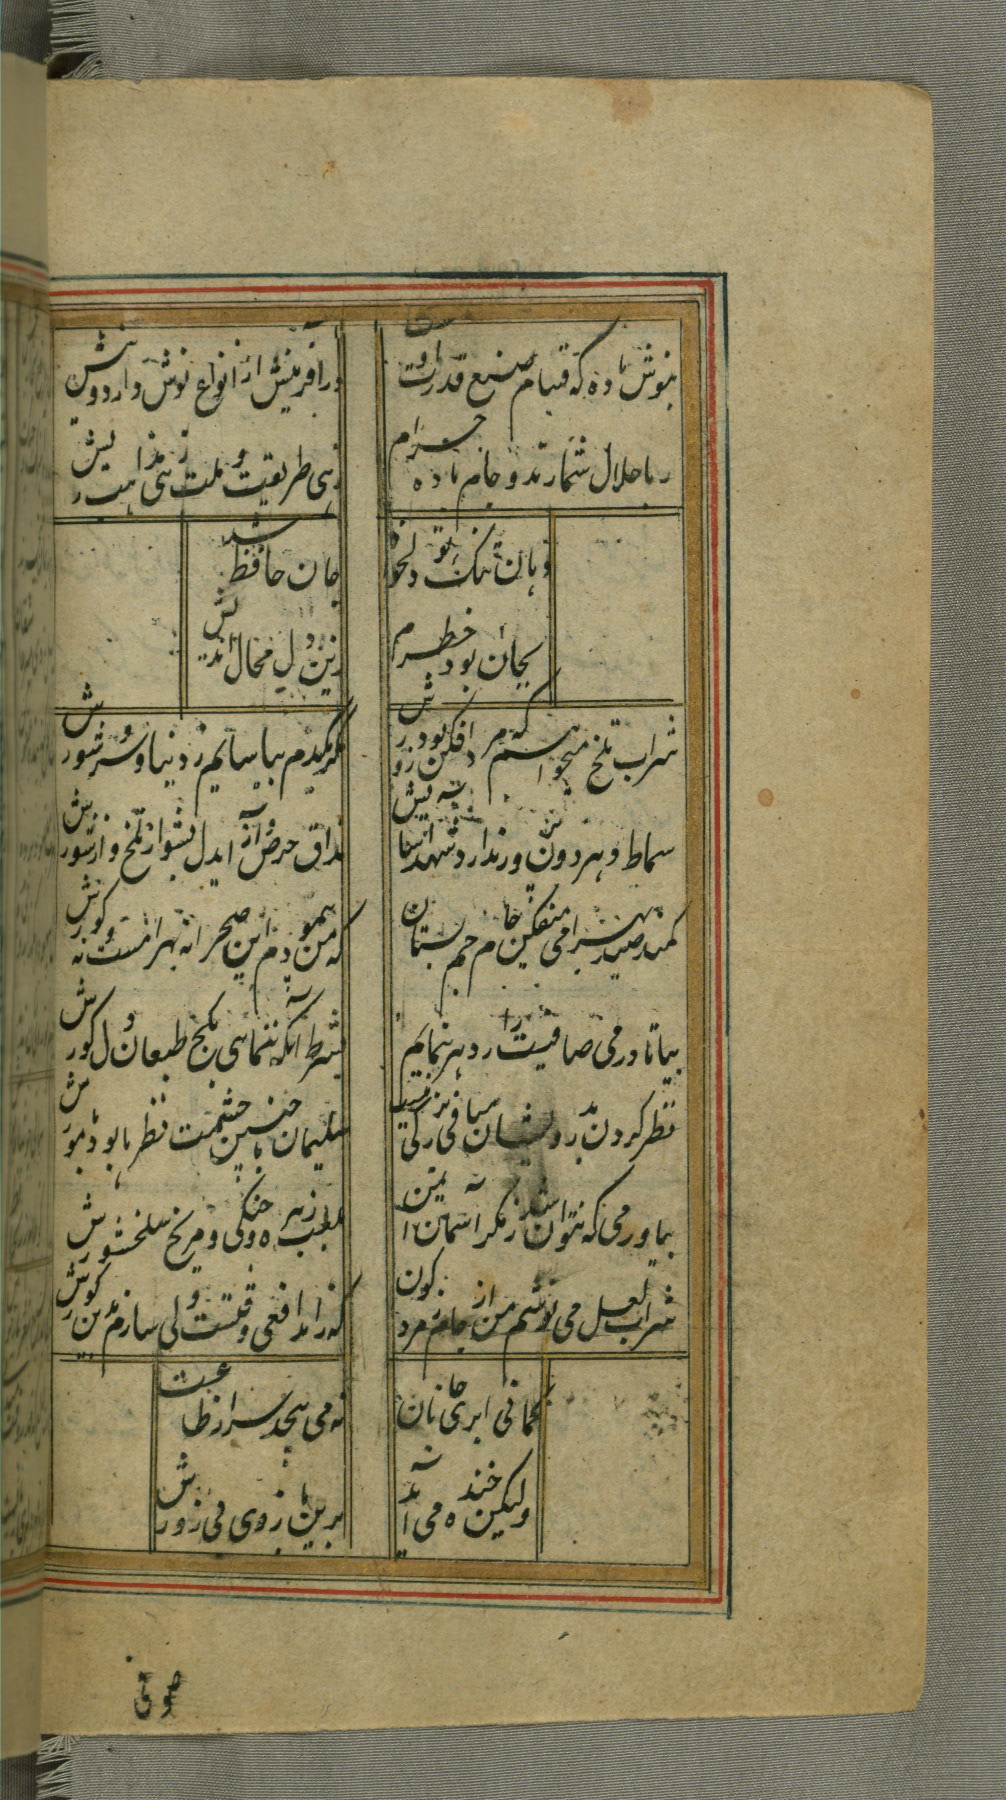 بنوش باده که قسام صنع قدرت او
در آفرینش از انواع نوش دارد و نیش
ربا حلال شمارند و جام باده حرام
زهی طریقت و ملت زهی
دهان تنگ تو دلخواه جان حافظ شد
بجان بود خطرم زین دل محال اندیش
شراب تلخ میخواهم که مرد افکن بود زورش
مگر یکدم بیاسایم ز دنیا و شر و شورش
سماط دهر دون پرور ندارد شهد آسایش
مذاق حرص و آز ای دل بشو از تلخ و از شورش
کمند صید بهرامی بیفکن جام جم بستان
که من پیمودم این صحرا نه بهرامست و نه گورش
بیا تا در می صافیت راز دهر بنمایم
بشرط آنکه ننمایی بکج طبعان دل کورش
نظر کردن بدرویشان منافی بزرگی نیست
سلیمان با چنین حشمت نظرها بود با مورش
بیاور می که نتوان شد ز مکر آسمان ایمن
بلعب زهره چنگی و مریخ سلحشورش
شراب لعل می نوشم من از جام زمردگون
که زاهد افعی وقتست و می سازم بدین کورش
کمان ابروی جانان نمی پیچد سر از حافظ
ولیکن خنده می آید برین بازوی بی زورش
صوفی